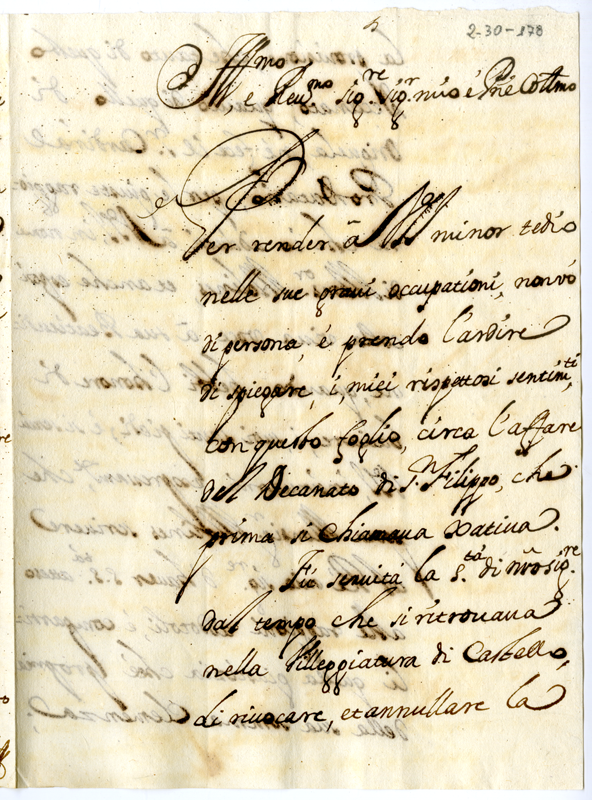 5
2-30-178
Illmo
e Reu.mo Sig.re Sig.r mio é Pne Collmo
Per render â VS Ill minor tedio
nelle sue graui occupationi, non vò
di persona, é prendo l'ardire
di spiegare, i, miei rispettosi sentim.ti
con questo foglio, circa l'affare
del Decanato di S. Filippo, che
prima si chiamaua Xatiua.
Fù seruita la S.tá di Nro Sig.re
dal tempo che si ritrouaua
nella Villeggiatura di Castello,
di riuocare, et annullare la